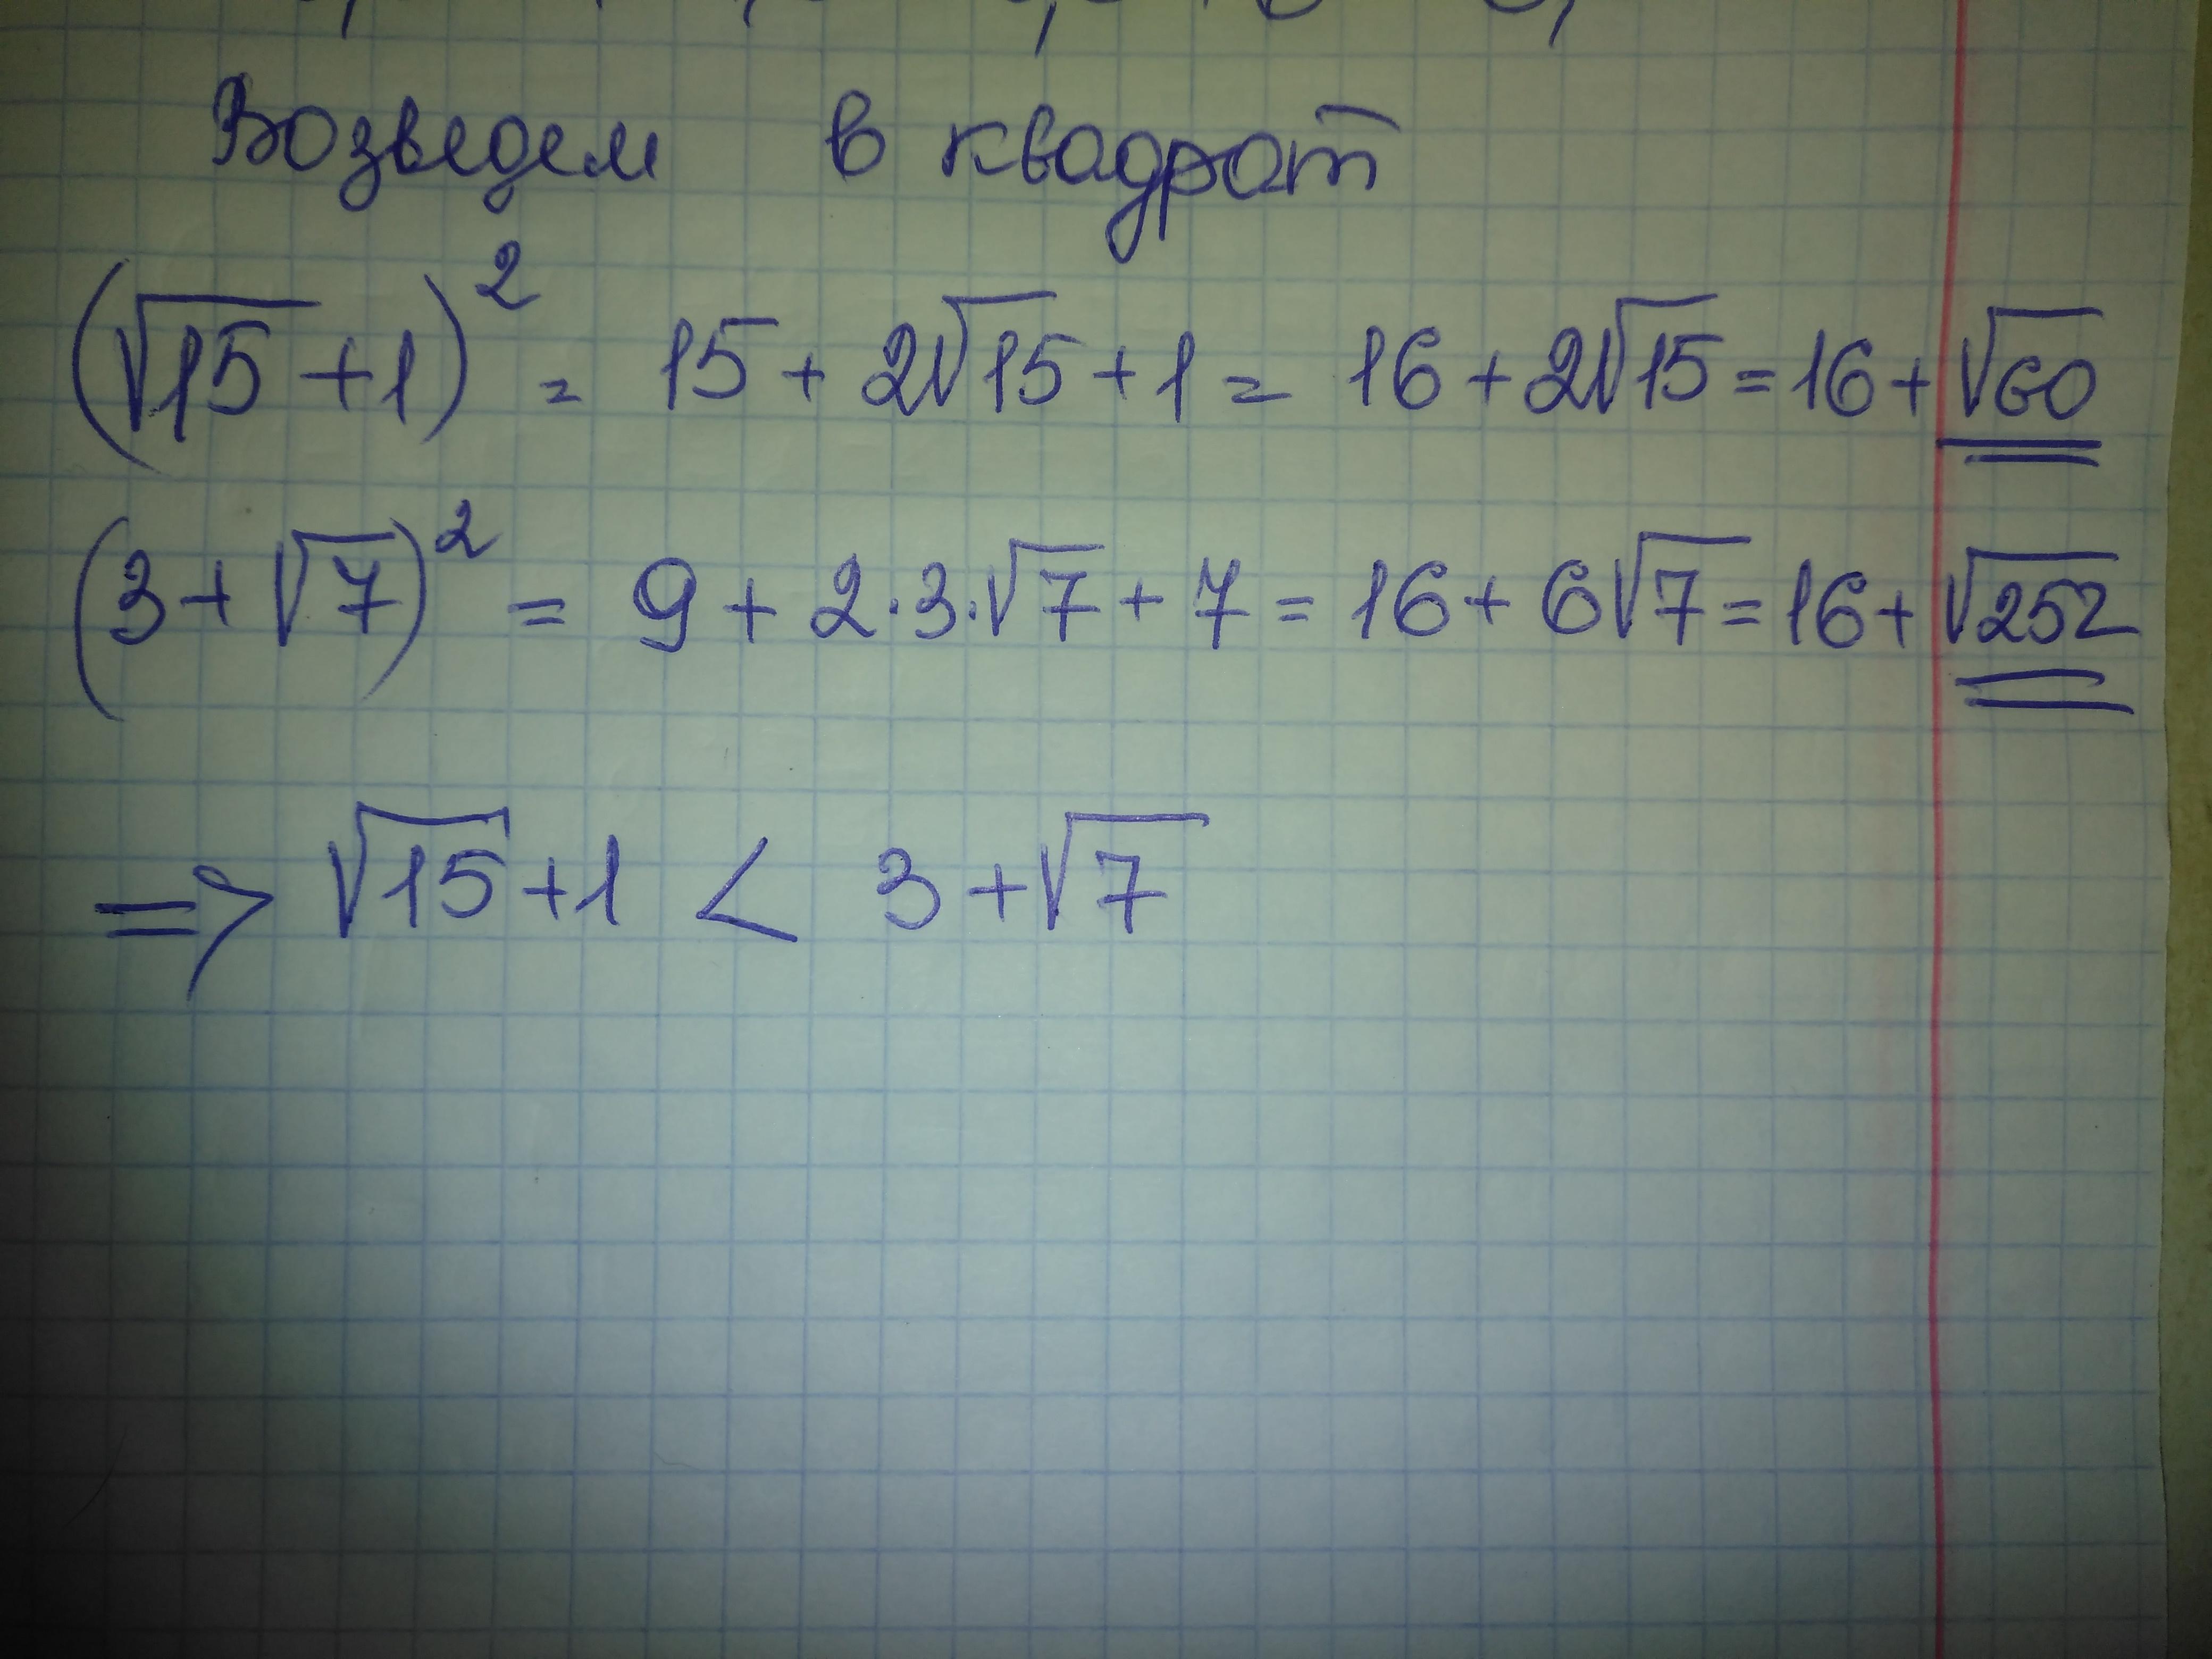 Возведем в квадрат
(√15+1)² = 15+2√15+1= 16+2√15=16+√60
(3+√7)² = 9+2·3·√7+7=16+6√7=16+√252
⇒ √15+1 < 3+√7